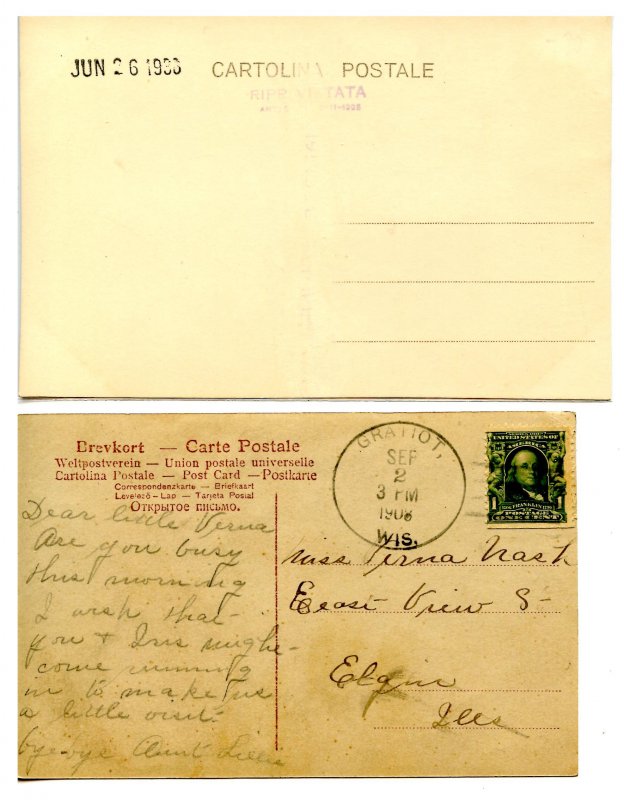 JUN 26 1933 CARTOLINA POSTALE
Brevkort — Carte Postale
Weltpostverein — Union postale universelle
Cartolina Postale — Post Card — Postkarte
Correspondenzkarte — Briefkaart
Levelező-Lap — Tarjeta Postal
Открытое письмо.
Dear little Verna
Are you busy
this morning
I wish that
you + Iris might
come running
in to make us
a little visit.
bye-bye Aunt Lillie
GRATIOT,
SEP
2
3 PM
1908
WIS.
UNITED STATES OF
AMERICA
1 FRANKLIN 1
POSTAGE
ONE CENT
Miss Verna Nash
East View S
Elgin
Ills